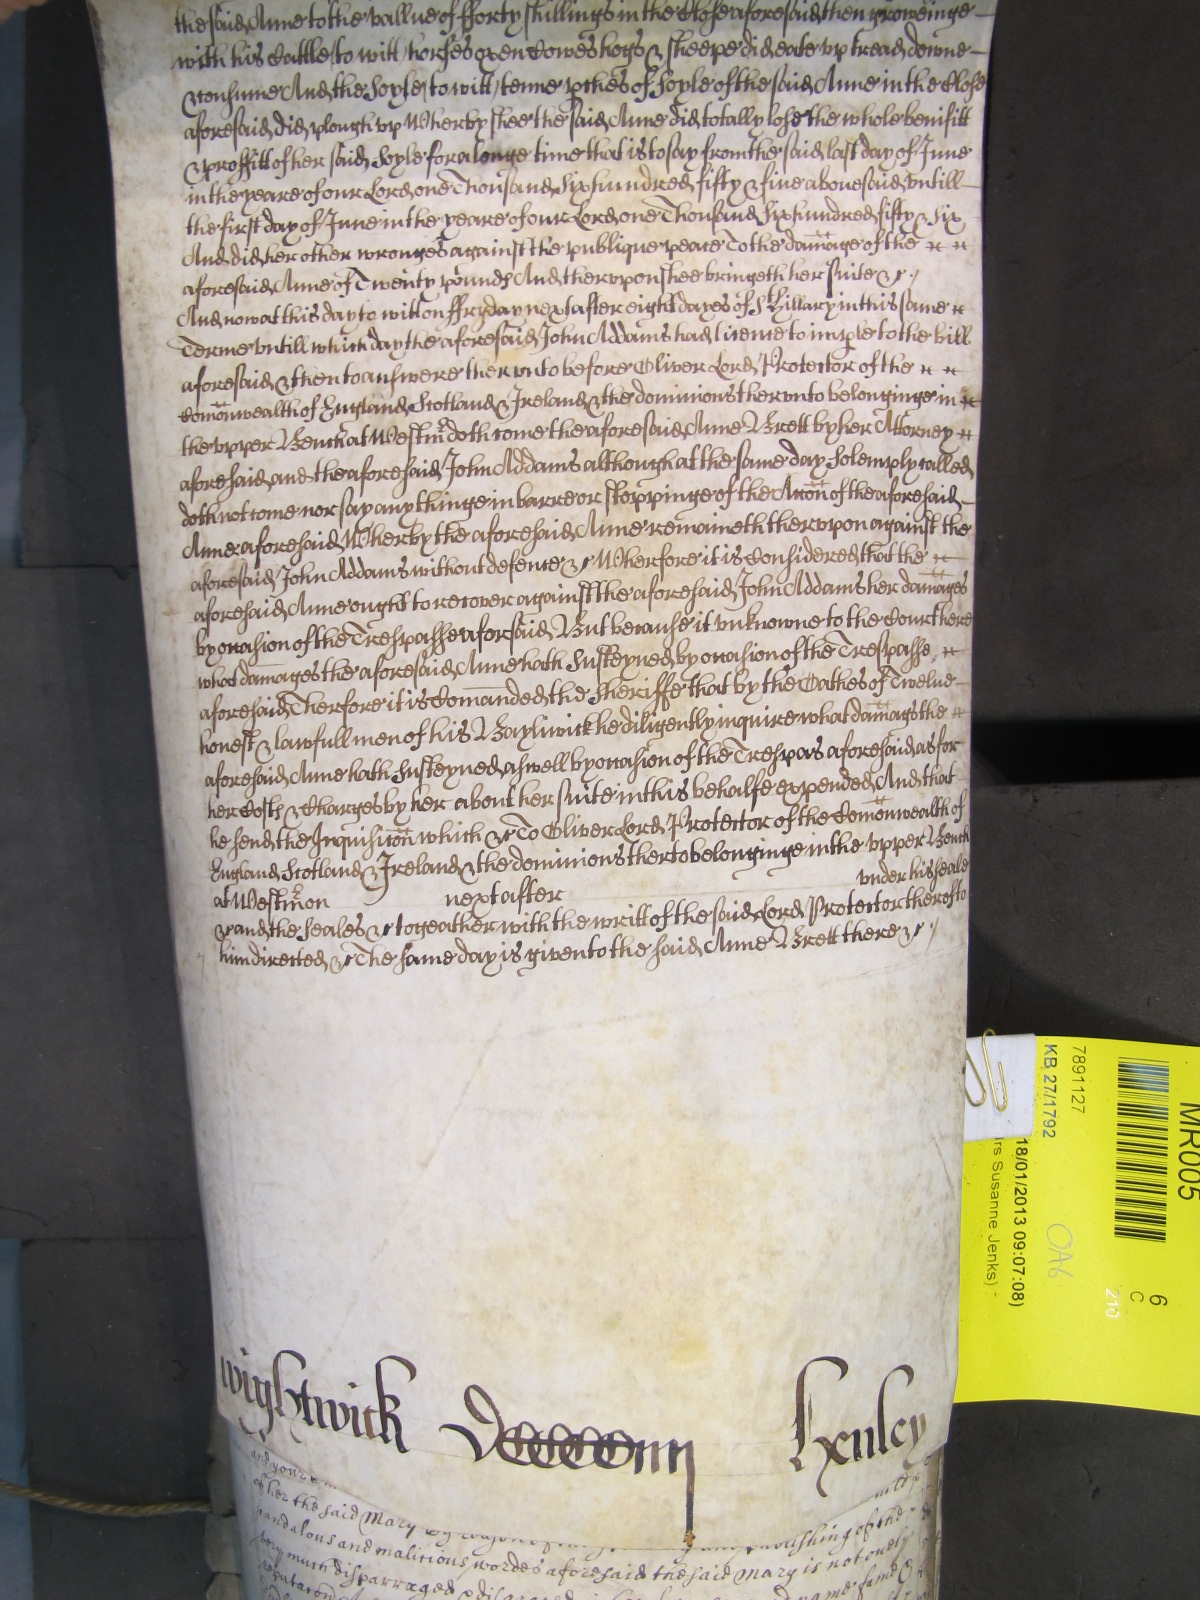 the said Anne to the vallue of fforty shillings in the Close aforesaid then groweinge
with his Cattle to witt horses oxen Cowes hogs & sheepe did eate vp tread downe
& consume And the Soyle to witt tenne pches of Soyle of the said Anne in the Close
aforesaid did plough vp Wherby shee the said Anne did totally lose the whole benifitt
& proffitt of her said Soyle for a longe time that is to say from the said last day of June
in the yeare of our Lord one Thousand Six hundred fifty & fiue abouesaid vntill
the first day of June in the yeare of our Lord one Thousand Six hundred fifty & six
And did her other wronges against the publique peace To the damage of the
aforesaid Anne of Twenty pounds And thervpon shee bringeth her suite &c
And now at this day to witt on ffryday next after eight dayes of St Hillary in this same
Terme vntill which day the aforesaid John Addams had licence to imple to the bill
aforesaid & then to answere thervnto before Oliver Lord Protector of the
Comonwealth of England Scotland & Ireland & the dominions thervnto belonginge in
the vpper Bench at Westmr doth come the aforesaid Anne Brett by her Attorney
aforesaid and the aforesaid John Addams although at the same day Solemply called
doth not come nor say any thinge in barre or stoppinge of the Accon of the aforesaid
Anne aforesaid Wherby the aforesaid Anne remaineth thervpon against the
aforesaid John Addams without defence &c Wherfore it is Considered that the
aforesaid Anne ought to recover against the aforesaid John Addams her damages
by occasion of the Trespasse aforesaid But because it vnknowne to the Court here
what damages the aforesaid Anne hath Susteyned by occasion of the Trespasse
aforesaid Therfore it is Comanded the Sheriffe that by the Oathes of Twelue
honest & lawfull men of his Bayliwick he diligently inquire what damags the
aforesaid Anne hath Susteyned aswell by occasion of the Trespas aforesaid as for
her Costs & Charges by her about her suite in this behalfe expended And that
he send the Inquisicon which &c To Oliver Lord Protector of the Comonwealth of
England Scotland & Ireland & the dominions therto belonginge in the vpper Bench
at Westmr on next after vnder his seale
& and the seales &c togeather with the writt of the said Lord Protector therof to
him directed &c The same day is given to the said Anne Brett there &c
wightwick
Henley
of her the said Mary by reason of
scandalous and malitious wordes aforesaid the said Mary is not onely
very much disparraged
MR005
6
C
210
OA6
7891127
KB 27/1792
18/01/2013 09:07:08)
rs Susanne Jenks) -